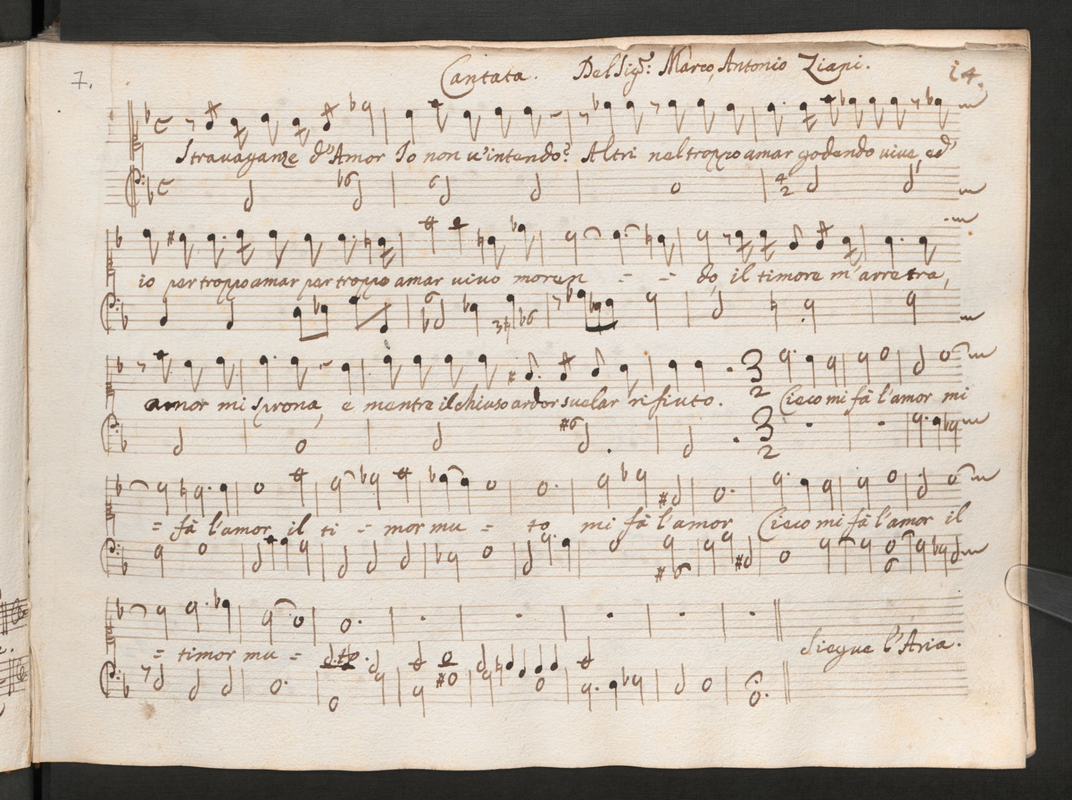 7. Cantata. Del Sigr: Marco, Antonio Ziani. 14.
Stravaganze d'Amor Io non v'intendo? Altri nel troppo amar godendo vive, ed'
io per troppo amar per troppo amar vivo moren - - do, il timore m'arretra,
amor mi sprona, e mentre il chiuso ardor svelar rifiuto. Cieco mi fà l'amor mi
= fà l'amor il ti - mor mu = to mi fà l'amor Cieco mi fà l'amor il
= timor mu = to.
Siegue l'Aria.